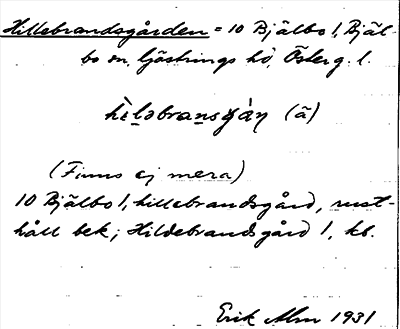 Hillebrandsgården = 10 Bjälbo 1, Bjäl-
bo sn, Göstrings hd, Österg. l.
hìləbransgàɳ (ã)
(Finns ej mera)
10 Bjälbo 1, hillebrandsgård, rust-
håll bek; Hildebrandsgård 1, kb.
Erik Alm 1931